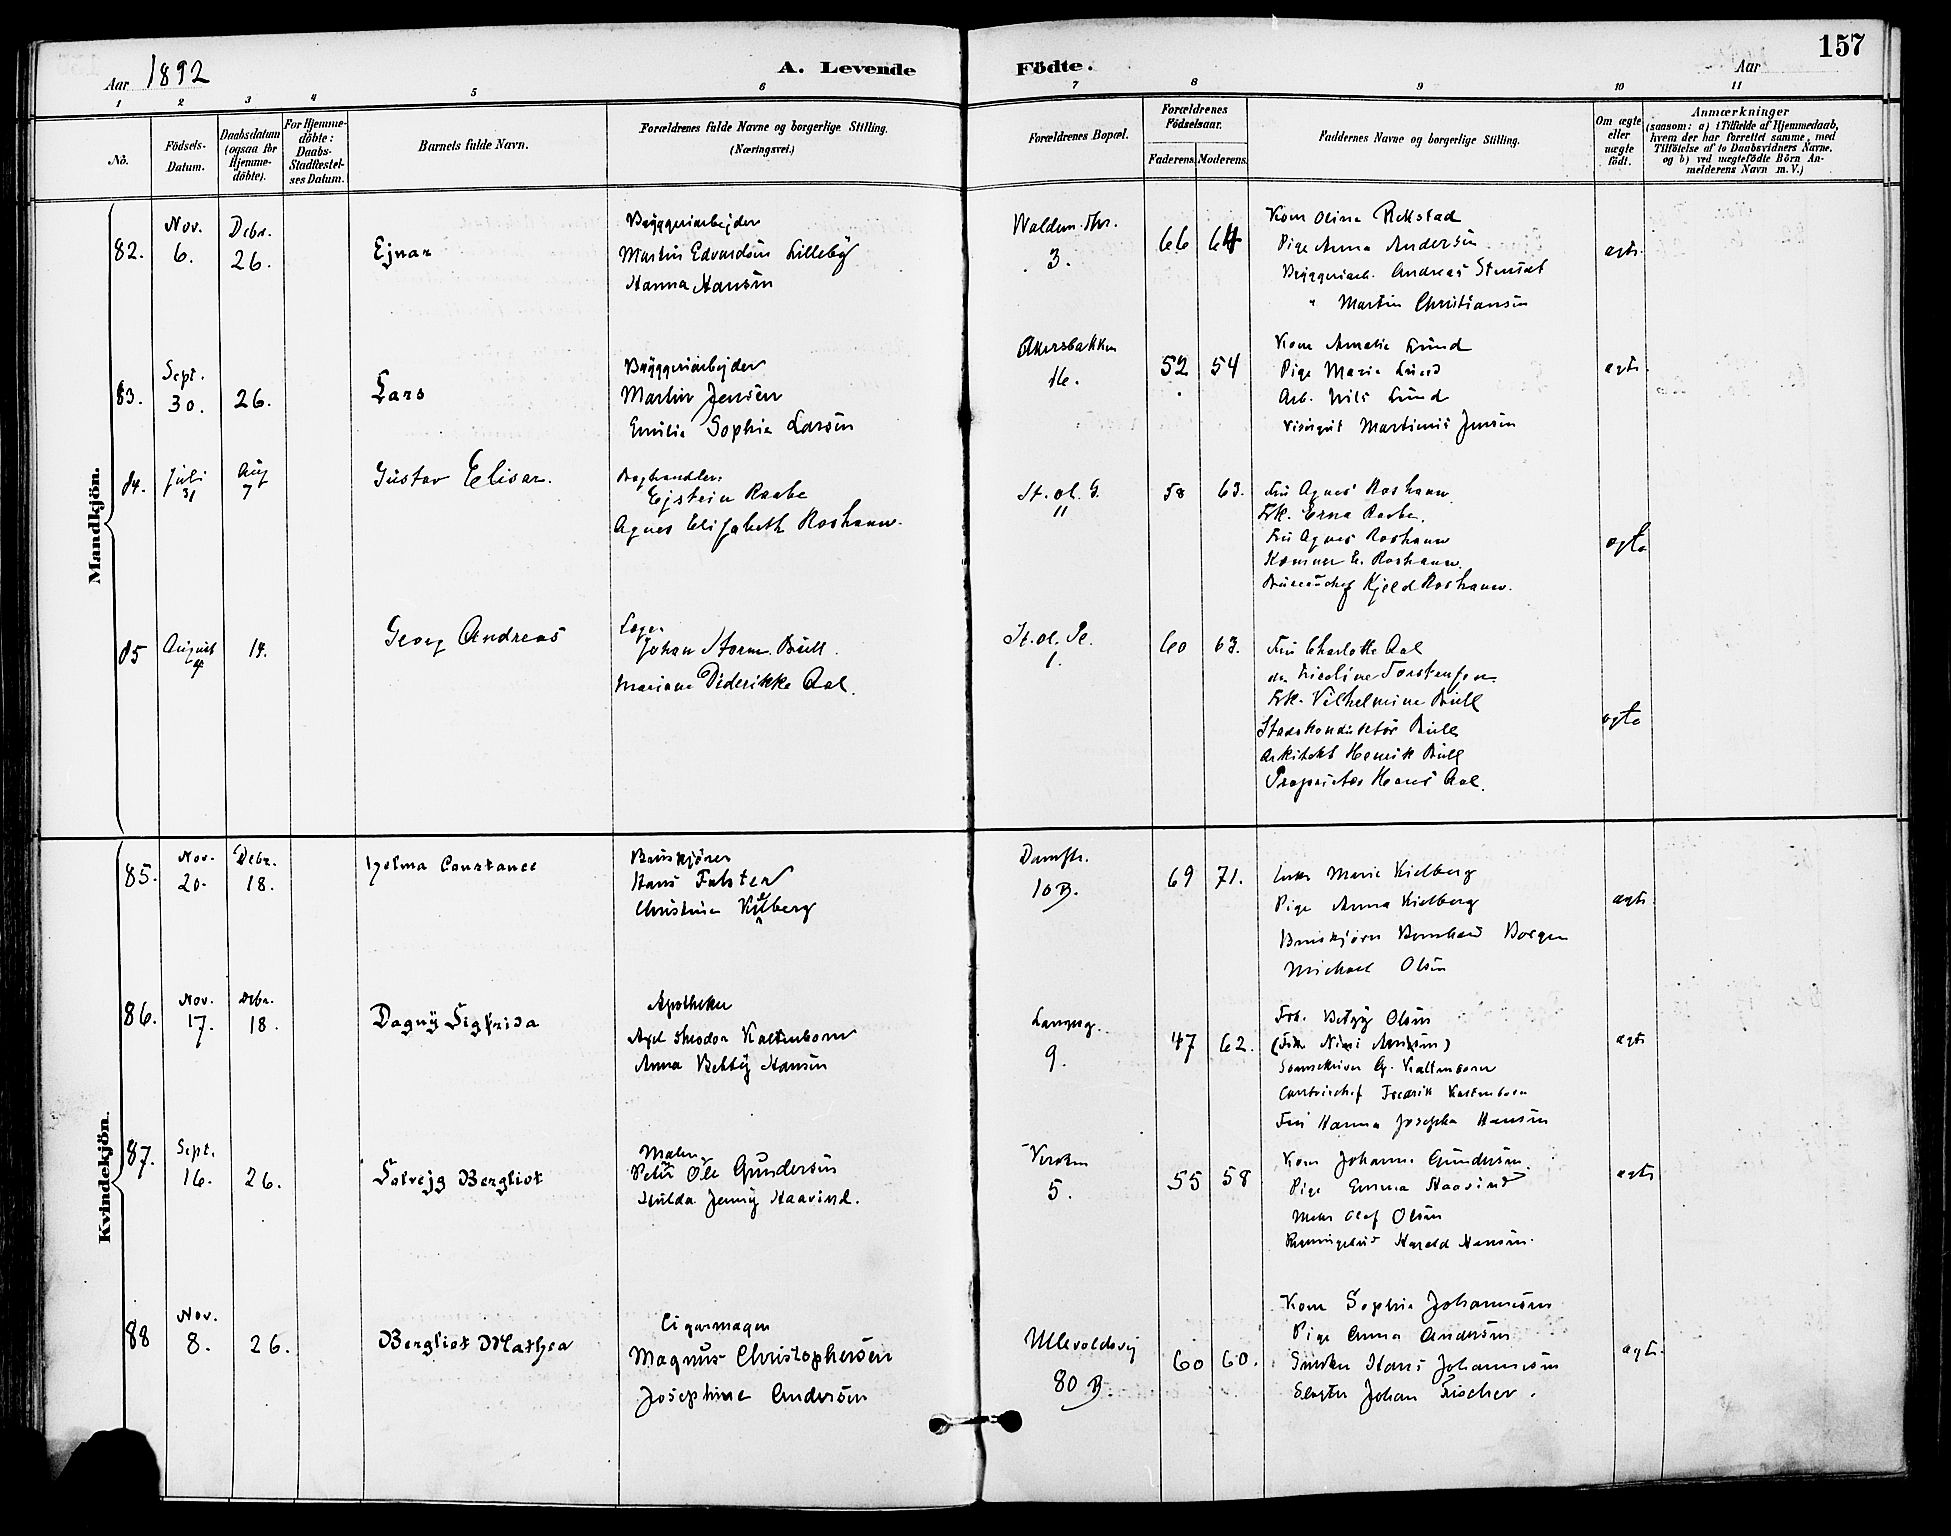 157
Aar 1892
A. Levende Födte.
Aar
1 2 3 4 5 6 7 8 9 10 11
No.
Födsels-Datum.
Daabsdatum (ogsaa för Hjemme-döbte).
For Hjemme-döbte: Daabs-Stadfæstel-ses Datum.
Barnets fulde Navn.
Forældrenes fulde Navne og borgerlige Stilling. (Næringsvei.)
Forældrenes Bopæl.
Forældrenes Födselsaar.
Faderens. Moderens.
Faddernes Navne og borgerlige Stilling.
Om ægte eller uægte födt.
Anmærkninger
(saasom: a) i Tilfælde af Hjemmedaab, hvem der har forrettet samme, med Tilföielse af to Daabsvidners Navne. og b) ved uægtefödte Börn An-melderens Navn m. V.)
Mandkjön.
82. Nov. 6. Debr. 26.
Ejnar
Bryggeriarbejder
Martin Edvardsen Lilleby
Hanna Hansen
Waldem. Thr. 3.
66 64
Kone Olina Rekstad
Pige Anna Andersen
Bryggeriarb. Andreas
" Martin Christiansen
ægte
83. Sept. 30. 26.
Lars
Bryggeriarbejder
Martin Jensen
Emilie Sophie Larsen
Akersbakken 16.
52 54
Kone Amalie Lund
Pige Marie Lund
Arb. Nils Lund
Martinius Jensen
ægte
84. Juli 31 Aug 7
Gustav Elisar.
Boghandler
Ejstein Raabe
Agnes Elisabeth Roshauw.
St. Ol. G. 11
58 63.
Fru Agnes Roshauw.
Frk. Erna Raabe.
Fru Agnes Roshauw
E. Roshauw.
Bureauchef Kjeld Roshauw.
ægte
85 August 4. 14.
Georg Andreas
Læge
Johan Storm Bull.
Mariane Diderikke Aal.
St. Ol. Pl. 1.
60 63.
Fru Charlotte Aal
do Nicoline Torstensen.
Frk. Vilhelmine Bull
Stadskonduktør Bull
Arkitekt Henrik Bull
Proprietær Hans Aal.
ægte
Kvindekjön.
85. Nov. 20. Debr. 18.
Hjelma Constance
Bruskjører
Hans Falster
Christine Kielberg
Damstr. 10 B.
69 71.
Enke Marie Kielberg
Pige Anna Kielberg
Bruskjører Bernhard Borgen
Michael Olsen
ægte
86. Nov. 17. Debr. 18.
Dagny Sigfrida
Apotheker
Axel Theodor Kaltenborn
Anna Betty Hansen
Langesg. 9.
47 62.
Frk. Betzy Olsen
Sorenskriver G. Kaltenborn
Contorchef Fredrik Kaltenborn
Fru Hanna Josepha Hansen
ægte
87. Sept. 16. 26.
Solvejg Bergliot
Maler
Peter Ole Gundersen
Hulda Jenny Haavind.
5.
55 58
Kone Johanne Gundersen.
Pige Emma Haavind
Maler Olaf Olsen
Harald Hansen.
ægte
88 Nov. 8. 26.
Bergliot Mathea
Cigarmager
Magnus Christophersen
Josephine Andersen
Ullevoldsvej 80 B.
60 60.
Kone Sophie Johannesen
Pige Anna Andersen
Snedker Hans Johannesen
Slagter Johan Fischer.
ægte